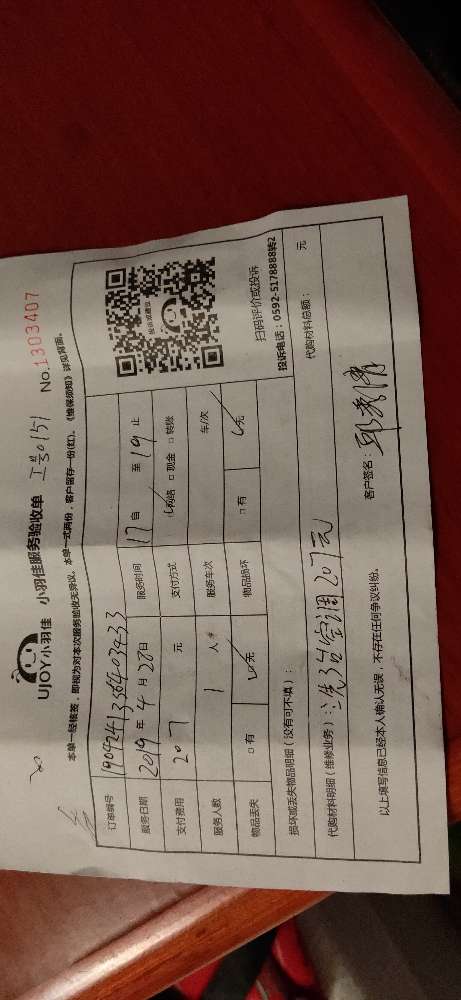 UJOY小羽佳 小羽佳服务验收单 工号0151 No.1303407
本单一经核签，即视为对本次服务验收无异议。本单一式两份，客户留存一份(红)。《维保须知》详见背面。
订单编号
服务日期 2019 年 4 月 28 日 服务时间 17 自 至 19 止
支付费用 207 元 支付方式 网络 □ 现金 □ 转账
服务人数 1 人 服务车次 车/次
物品丢失 □ 有 无 物品损坏 □ 有 无
扫码评价或投诉
投诉电话：0592-5178888转2
损坏或丢失物品明细（没有可不填）：
代购材料明细（维修业务）：洗3台空调207元 代购材料总额： 元
以上填写信息已经本人确认无误，不存在任何争议纠纷。 客户签名：